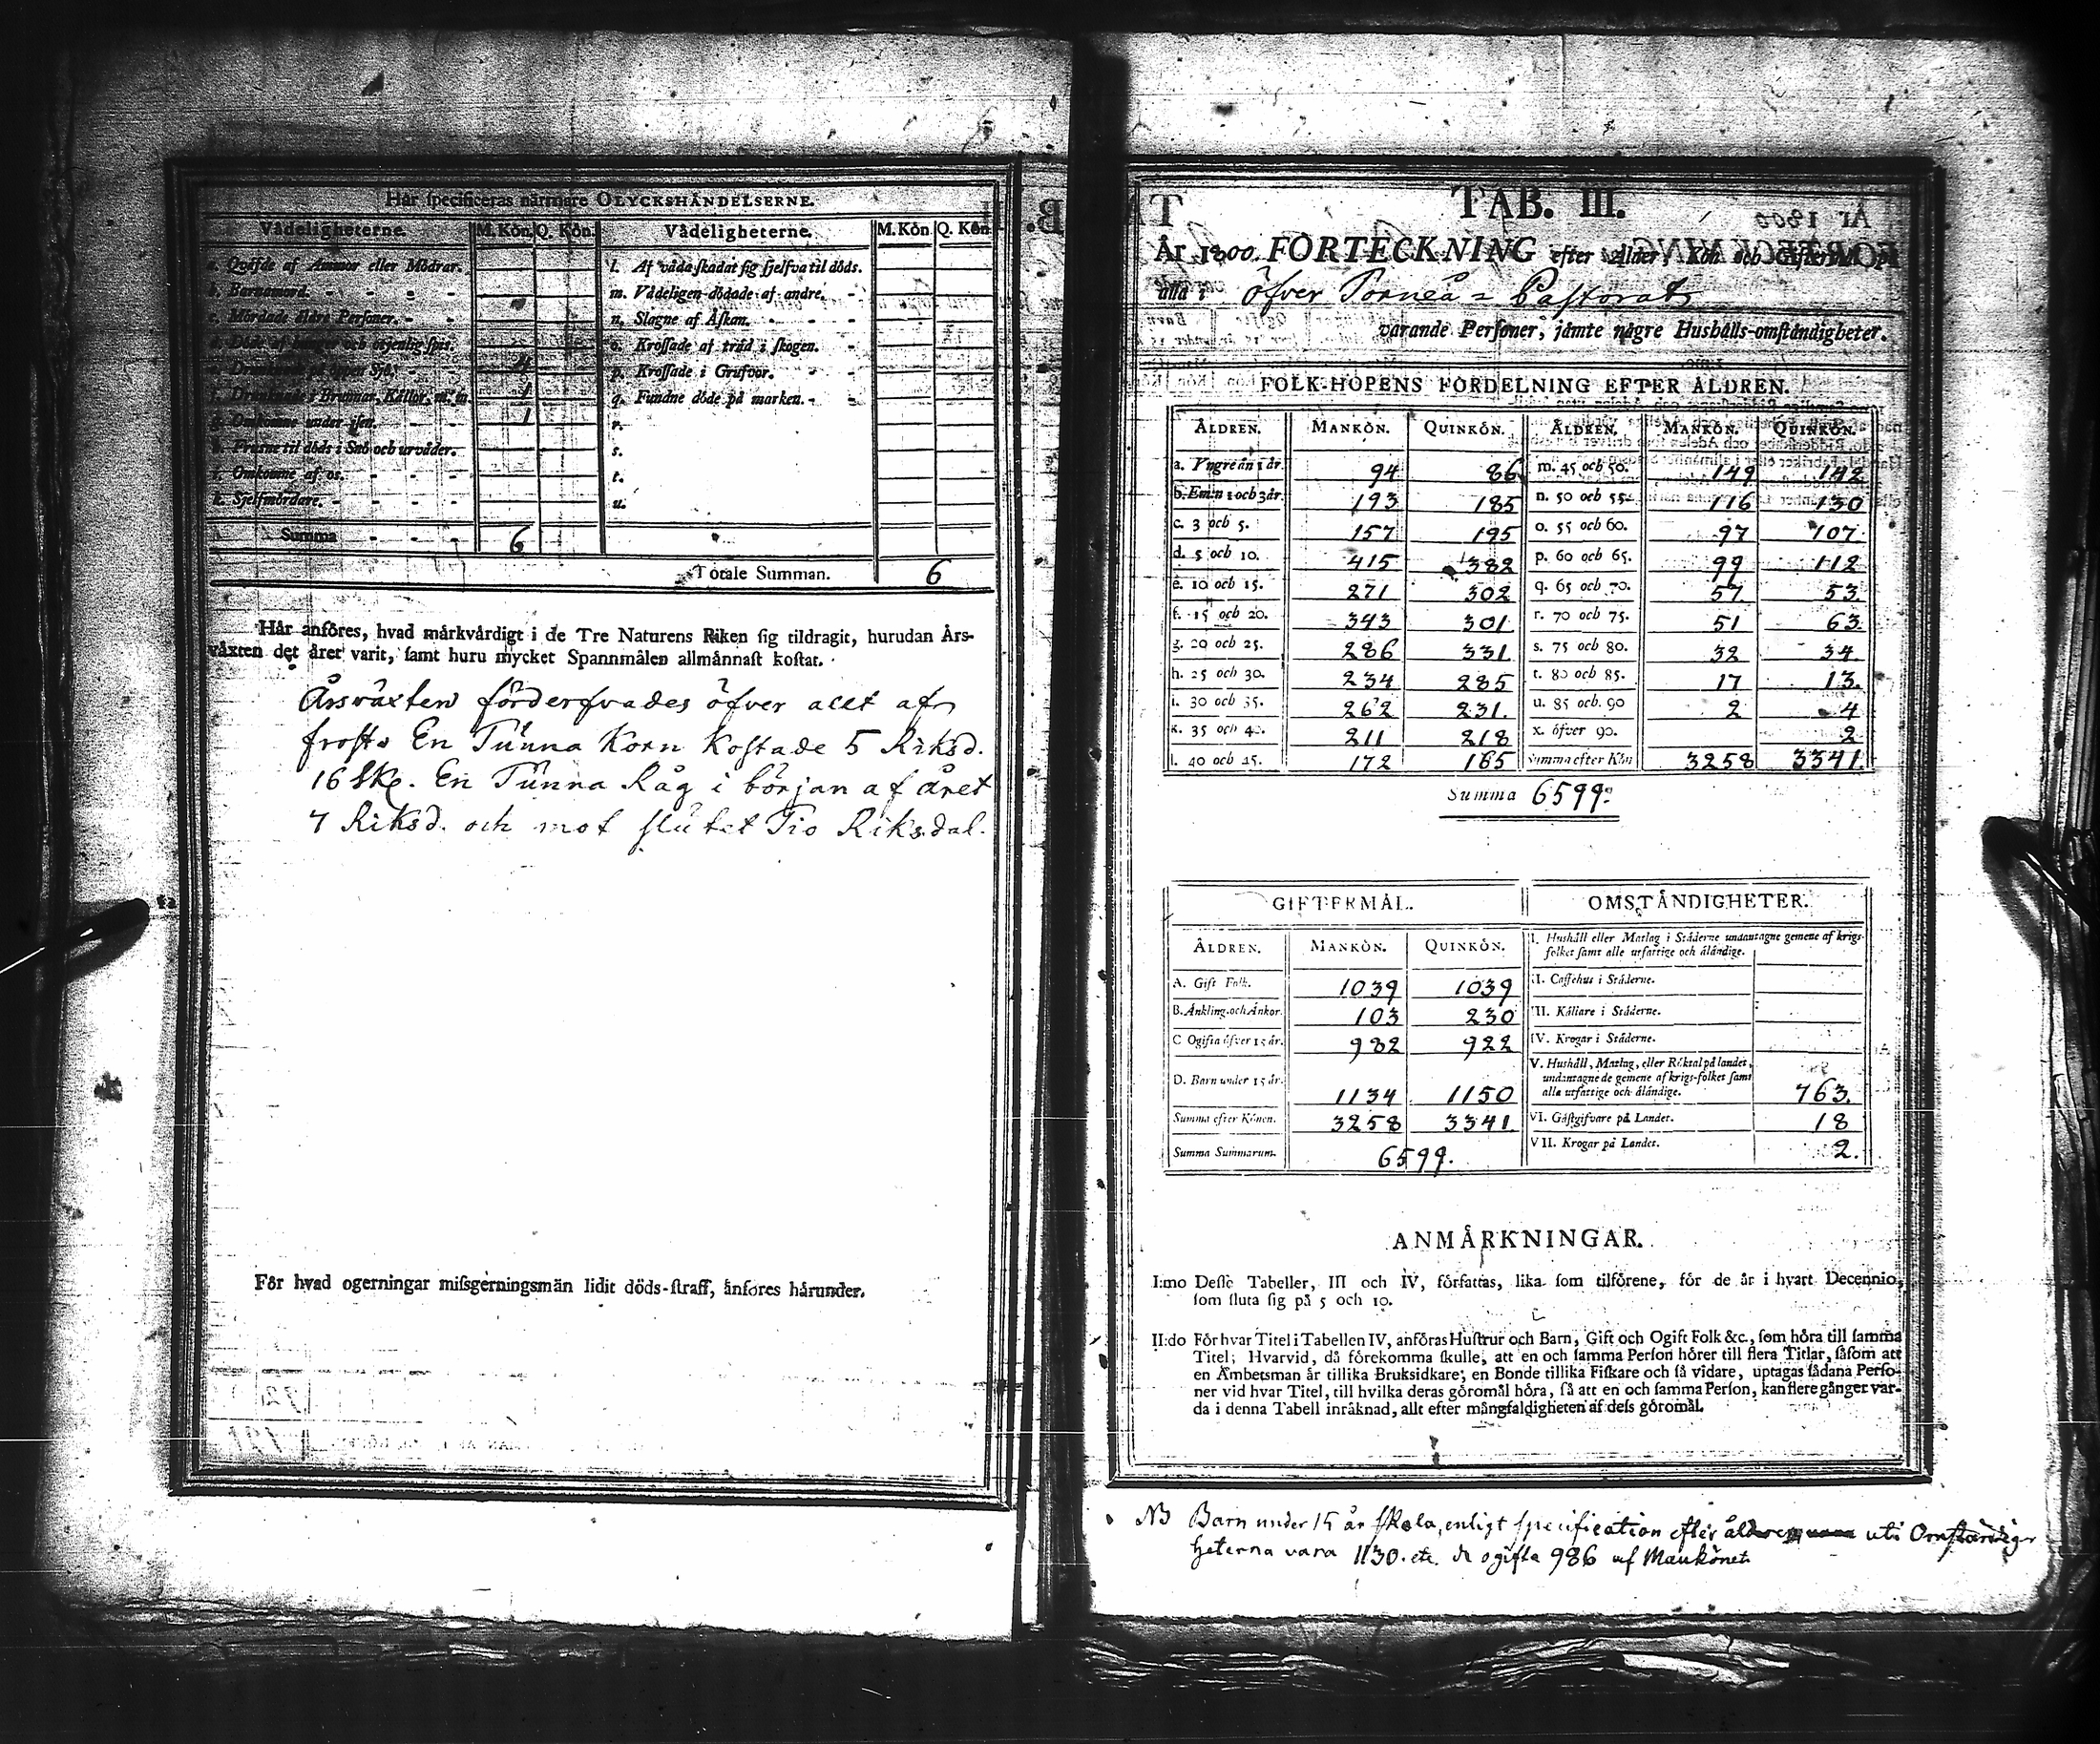 Här specificeras närmare OLYCKSHÄNDELSERNE.
Vådeligheterne. M. Kön. Q. Kön. Vådeligheterne. M. Kön Q. Kön
a. Qväfde af Ammor eller Mödrar. l. Af våda skadat sig sjelfva til döds.
b. Barnamord. m. Vådeligen dödade af andre.
c. Mördade äldre Personer. n. Slagne af Åskan.
d. Döde af hunger och otjenlig spis. o. Krossade af träd i skogen.
e. Drunknade på öppen Sjö. 4 p. Krossade i Grufvor.
f. Drunknade i Brunnar, Källor, m.m. 1 q. Fundne döde på marken.
g. Omkomne under isen. 1 r.
h. Frusne til döds i Snö och urväder. s.
i. Omkomne af os. t.
k. Sjelfmördare. u.
Summa 6
Totale Summan. 6
Här anföres, hvad märkvärdigt i de Tre Naturens Riken sig tildragit, hurudan Års-
växten det året varit, samt huru mycket Spannmålen allmännast kostat.
Årsväxten förderfvades öfver alt af
frost. En Tunna Korn kostade 5 Riksd.
16 sk. En Tunna Råg i början af året
7 Riksd. och mot slutet Tio Riksdal.
För hvad ogerningar missgerningsmän lidit döds-straff, anföres härunder.
TAB. III.
År 1800. FÖRTECKNING efter Ålder, Kön och Giftermål på
alla i Öfver Torneå Pastorat
varande Personer, jämte någre Hushålls-omständigheter.
FOLK-HOPENS FÖRDELNING EFTER ÅLDREN.
ÅLDREN. MANKÖN. QUINKÖN. ÅLDREN. MANKÖN. QUINKÖN.
a. Yngre än 1 år. 94 86 m. 45 och 50. 149 142
b. Emn 1 och 3 år. 193 185 n. 50 och 55. 116 130
c. 3 och 5. 157 195 o. 55 och 60. 97 107
d. 5 och 10. 415 382 p. 60 och 65. 99 112
e. 10 och 15. 271 302 q. 65 och 70. 57 53
f. 15 och 20. 343 301 r. 70 och 75. 51 63
g. 20 och 25. 286 331 s. 75 och 80. 32 34
h. 25 och 30. 234 285 t. 80 och 85. 17 13
i. 30 och 35. 262 231 u. 85 och 90 2 4
k. 35 och 40. 211 218 x. öfver 90. 2
l. 40 och 45. 172 165 Summa efter Kön 3258 3341
Summa 6599.
GIFTERMÅL. OMSTÄNDIGHETER.
ÅLDREN. MANKÖN. QUINKÖN. I. Hushåll eller Matlag i Städerne undantagne gemene af krigs-
folket samt alle utfattige och äländige.
A. Gift Folk. 1039 1039 II. Caffehus i Städerne.
B. Änkling. och Änkor. 103 230 III. Källare i Städerne.
C Ogifta öfver 15 år. 982 922 IV. Krogar i Städerne.
D. Barn under 15 år. 1134 1150 V. Hushåll, Matlag, eller Röktal på landet,
undantagne de gemene af krigs-folket samt
alle utfattige och äländige. 763.
Summa efter Könen. 3258 3341 VI. Gästgifvare på Landet. 18
Summa Summarum. 6599. VII. Krogar på Landet. 2.
ANMÄRKNINGAR.
I:mo Desse Tabeller, III och IV, författas, lika som tilförene, för de år i hvart Decennio,
som sluta sig på 5 och 10.
II:do För hvar Titel i Tabellen IV, anföras Hustrur och Barn, Gift och Ogift Folk &c., som höra till samma
Titel; Hvarvid, då förekomma skulle, att en och samma Person hörer till flera Titlar, såsom att
en Ämbetsman är tillika Bruksidkare; en Bonde tillika Fiskare och så vidare, uptagas sådana Perso-
ner vid hvar Titel, till hvilka deras göromål höra, så att en och samma Person, kan flere gånger var-
da i denna Tabell inräknad, allt efter mångfaldigheten af dess göromål.
NB Barn under 15 år skola, enligt specification efter åldren uti Omständig-
heterna vara 1130. etc. de ogifta 986 af Mankönet.